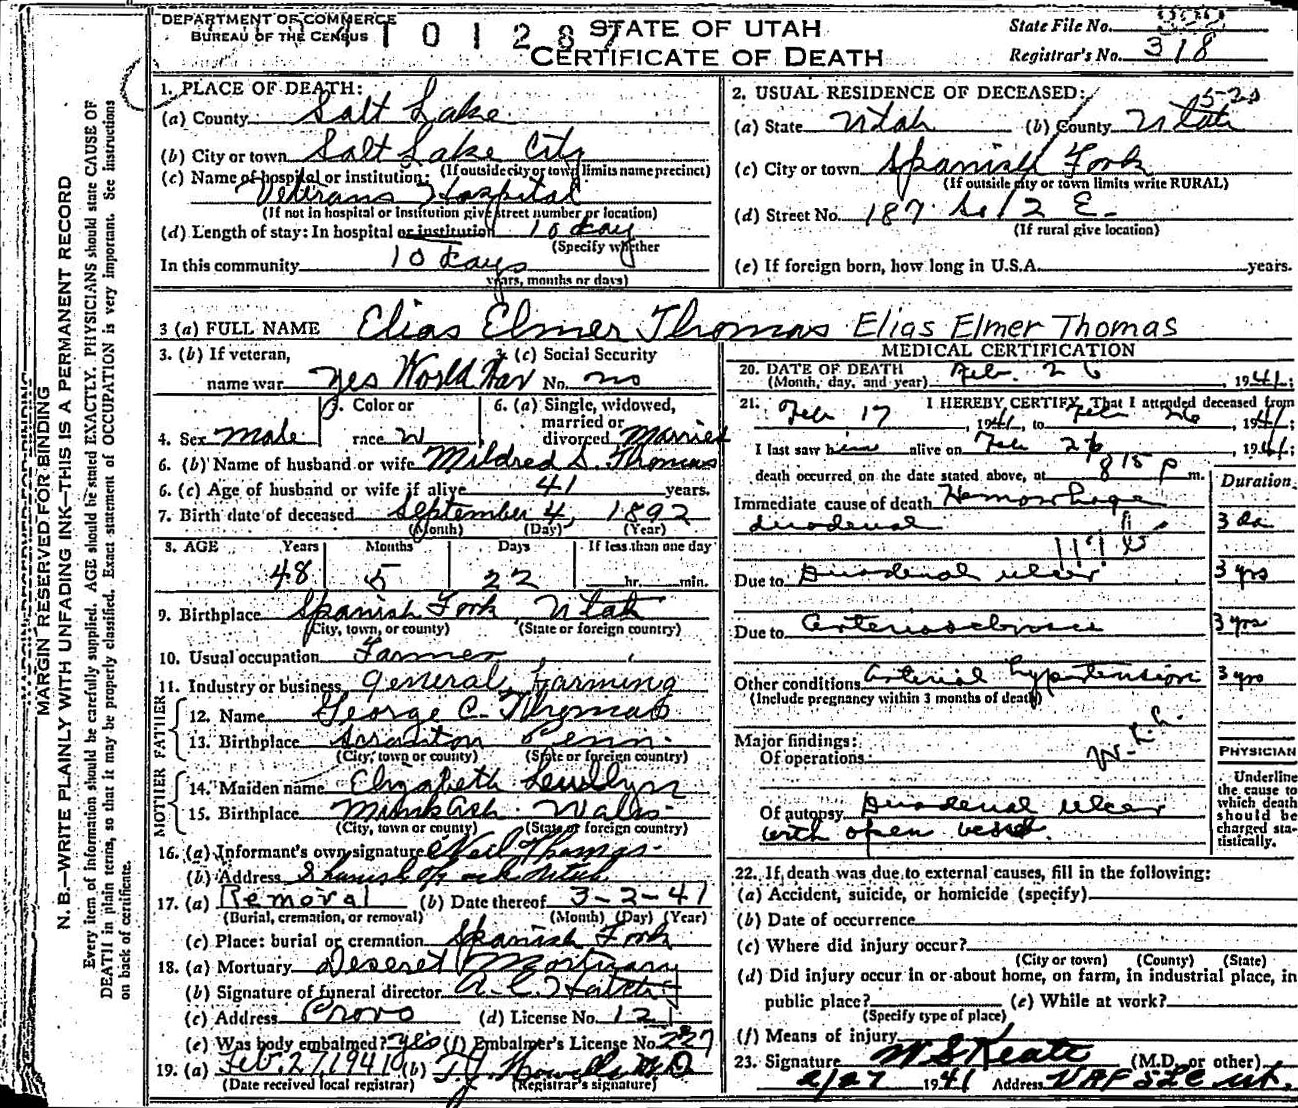 DEPARTMENT OF COMMERCE
BUREAU OF THE CENSUS
10128
STATE OF UTAH
CERTIFICATE OF DEATH
State File No.
Registrar's No. 318
MARGIN RESERVED FOR BINDING
N. B.—WRITE PLAINLY WITH UNFADING INK—THIS IS A PERMANENT RECORD
Every item of information should be carefully supplied. AGE should be stated EXACTLY. PHYSICIANS should state CAUSE OF
DEATH in plain terms, so that it may be properly classified. Exact statement of OCCUPATION is very important. See instructions
on back of certificate.
1. PLACE OF DEATH:
(a) County Salt Lake
(b) City or town Salt Lake City
(If outside city or town limits name precinct)
(c) Name of hospital or institution:
Veterans Hospital
(If not in hospital or institution give street number or location)
(d) Length of stay: In hospital or institution 10 day
(Specify whether
In this community 10 days
years, months or days)
2. USUAL RESIDENCE OF DECEASED:
(a) State Utah (b) County Utah
(c) City or town Spanish Fork
(If outside city or town limits write RURAL)
(d) Street No. 187 So 2 E.
(If rural give location)
(e) If foreign born, how long in U.S.A. years.
3 (a) FULL NAME Elias Elmer Thomas Elias Elmer Thomas
3. (b) If veteran,
name war yes World War
3. (c) Social Security
No. no
4. Sex Male
5. Color or
race W
6. (a) Single, widowed,
married or
divorced Married
6. (b) Name of husband or wife Mildred S. Thomas
6. (c) Age of husband or wife if alive 41 years.
7. Birth date of deceased September 4, 1892
(Month) (Day) (Year)
8. AGE Years Months Days If less than one day
48 5 22 hr. min.
9. Birthplace Spanish Fork Utah
(City, town, or county) (State or foreign country)
10. Usual occupation Farmer
11. Industry or business General Farming
FATHER
12. Name George C. Thomas
13. Birthplace Scranton Penn.
(City, town or county) (State or foreign country)
MOTHER
14. Maiden name Elizabeth
15. Birthplace Wales
(City, town or county) (State or foreign country)
16. (a) Informant's own signature Neil Thomas
(b) Address Spanish Fork Utah
17. (a) Removal (b) Date thereof 3-2-41
(Burial, cremation, or removal) (Month) (Day) (Year)
(c) Place: burial or cremation Spanish Fork
18. (a) Mortuary Deseret Mortuary
(b) Signature of funeral director
(c) Address Provo (d) License No. 121
(e) Was body embalmed? yes (f) Embalmer's License No. 227
19. (a) Feb. 27, 1941 (b) M.D.
(Date received local registrar) (Registrar's signature)
MEDICAL CERTIFICATION
20. DATE OF DEATH
(Month, day, and year) Feb. 26, 1941;
21. I HEREBY CERTIFY, That I attended deceased from
Feb 17, 1941, to Feb 26, 1941;
I last saw him alive on Feb 26, 1941;
death occurred on the date stated above, at 8 15 P m.
Duration
Immediate cause of death Hemorrhage
duodenal 3 da
Due to Duodenal ulcer 3 yrs
Due to Arteriosclerosis 3 yrs
Other conditions Arterial hypertension 3 yrs
(Include pregnancy within 3 months of death)
Major findings:
Of operations
Of autopsy Duodenal ulcer
with open vessel.
PHYSICIAN
Underline
the cause to
which death
should be
charged sta-
tistically.
22. If death was due to external causes, fill in the following:
(a) Accident, suicide, or homicide (specify)
(b) Date of occurrence
(c) Where did injury occur?
(City or town) (County) (State)
(d) Did injury occur in or about home, on farm, in industrial place, in
public place? (e) While at work?
(Specify type of place)
(f) Means of injury
23. Signature W S Keate (M.D. or other)
2/27 1941 Address VAF SLC Ut.